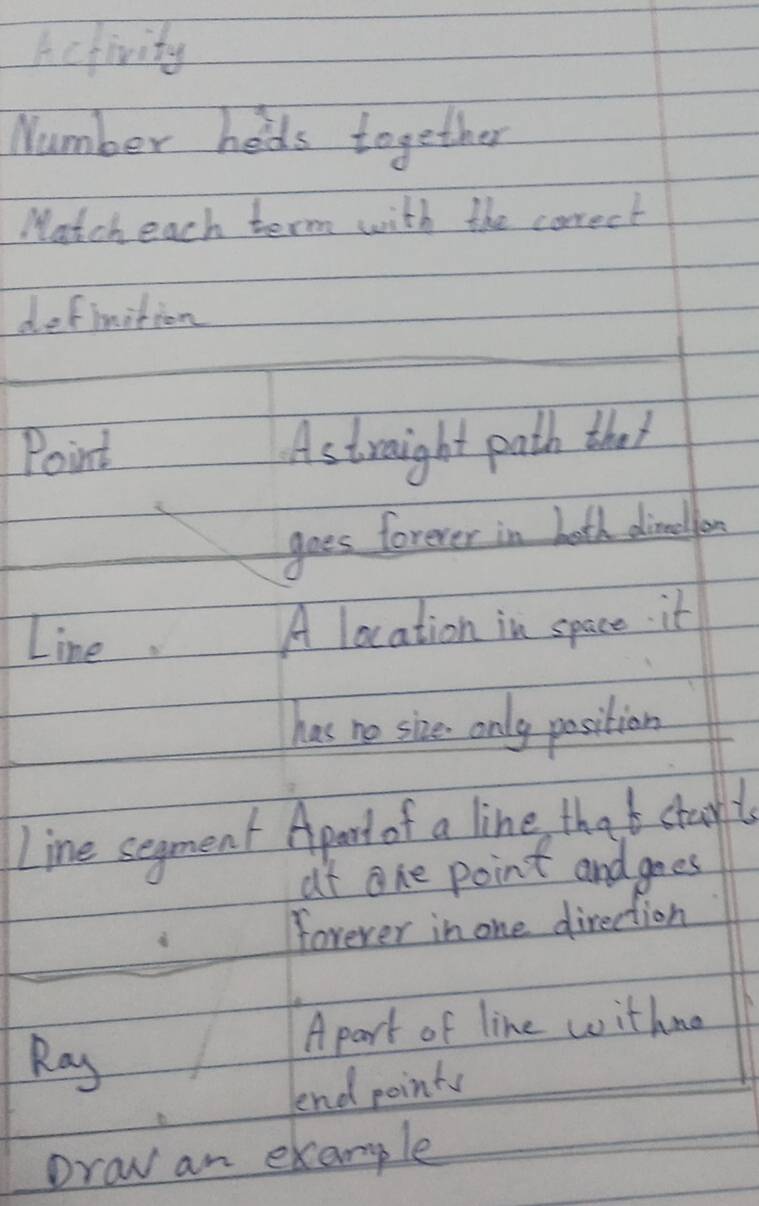 Activity
Number heads together
Match each term with the correct
definition
Point A straight path that
goes forever in both direction
Line A location in space it
has no size only position
Line segment A part of a line that starts
at one point and goes
forever in one direction
Ray A part of line with no
end points
Draw an example